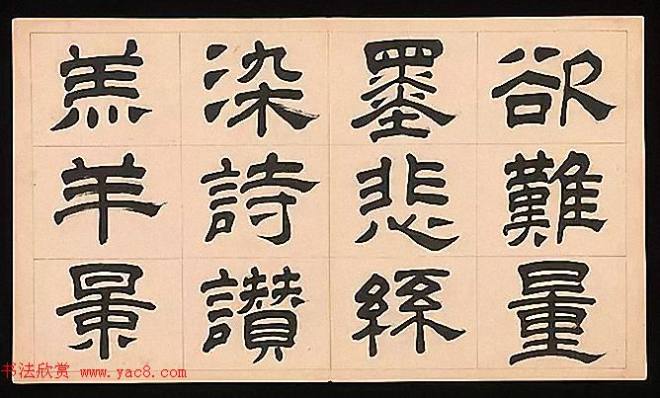 欲難量
墨悲絲
染詩讚
羔羊景
书法欣赏 www.yac8.com